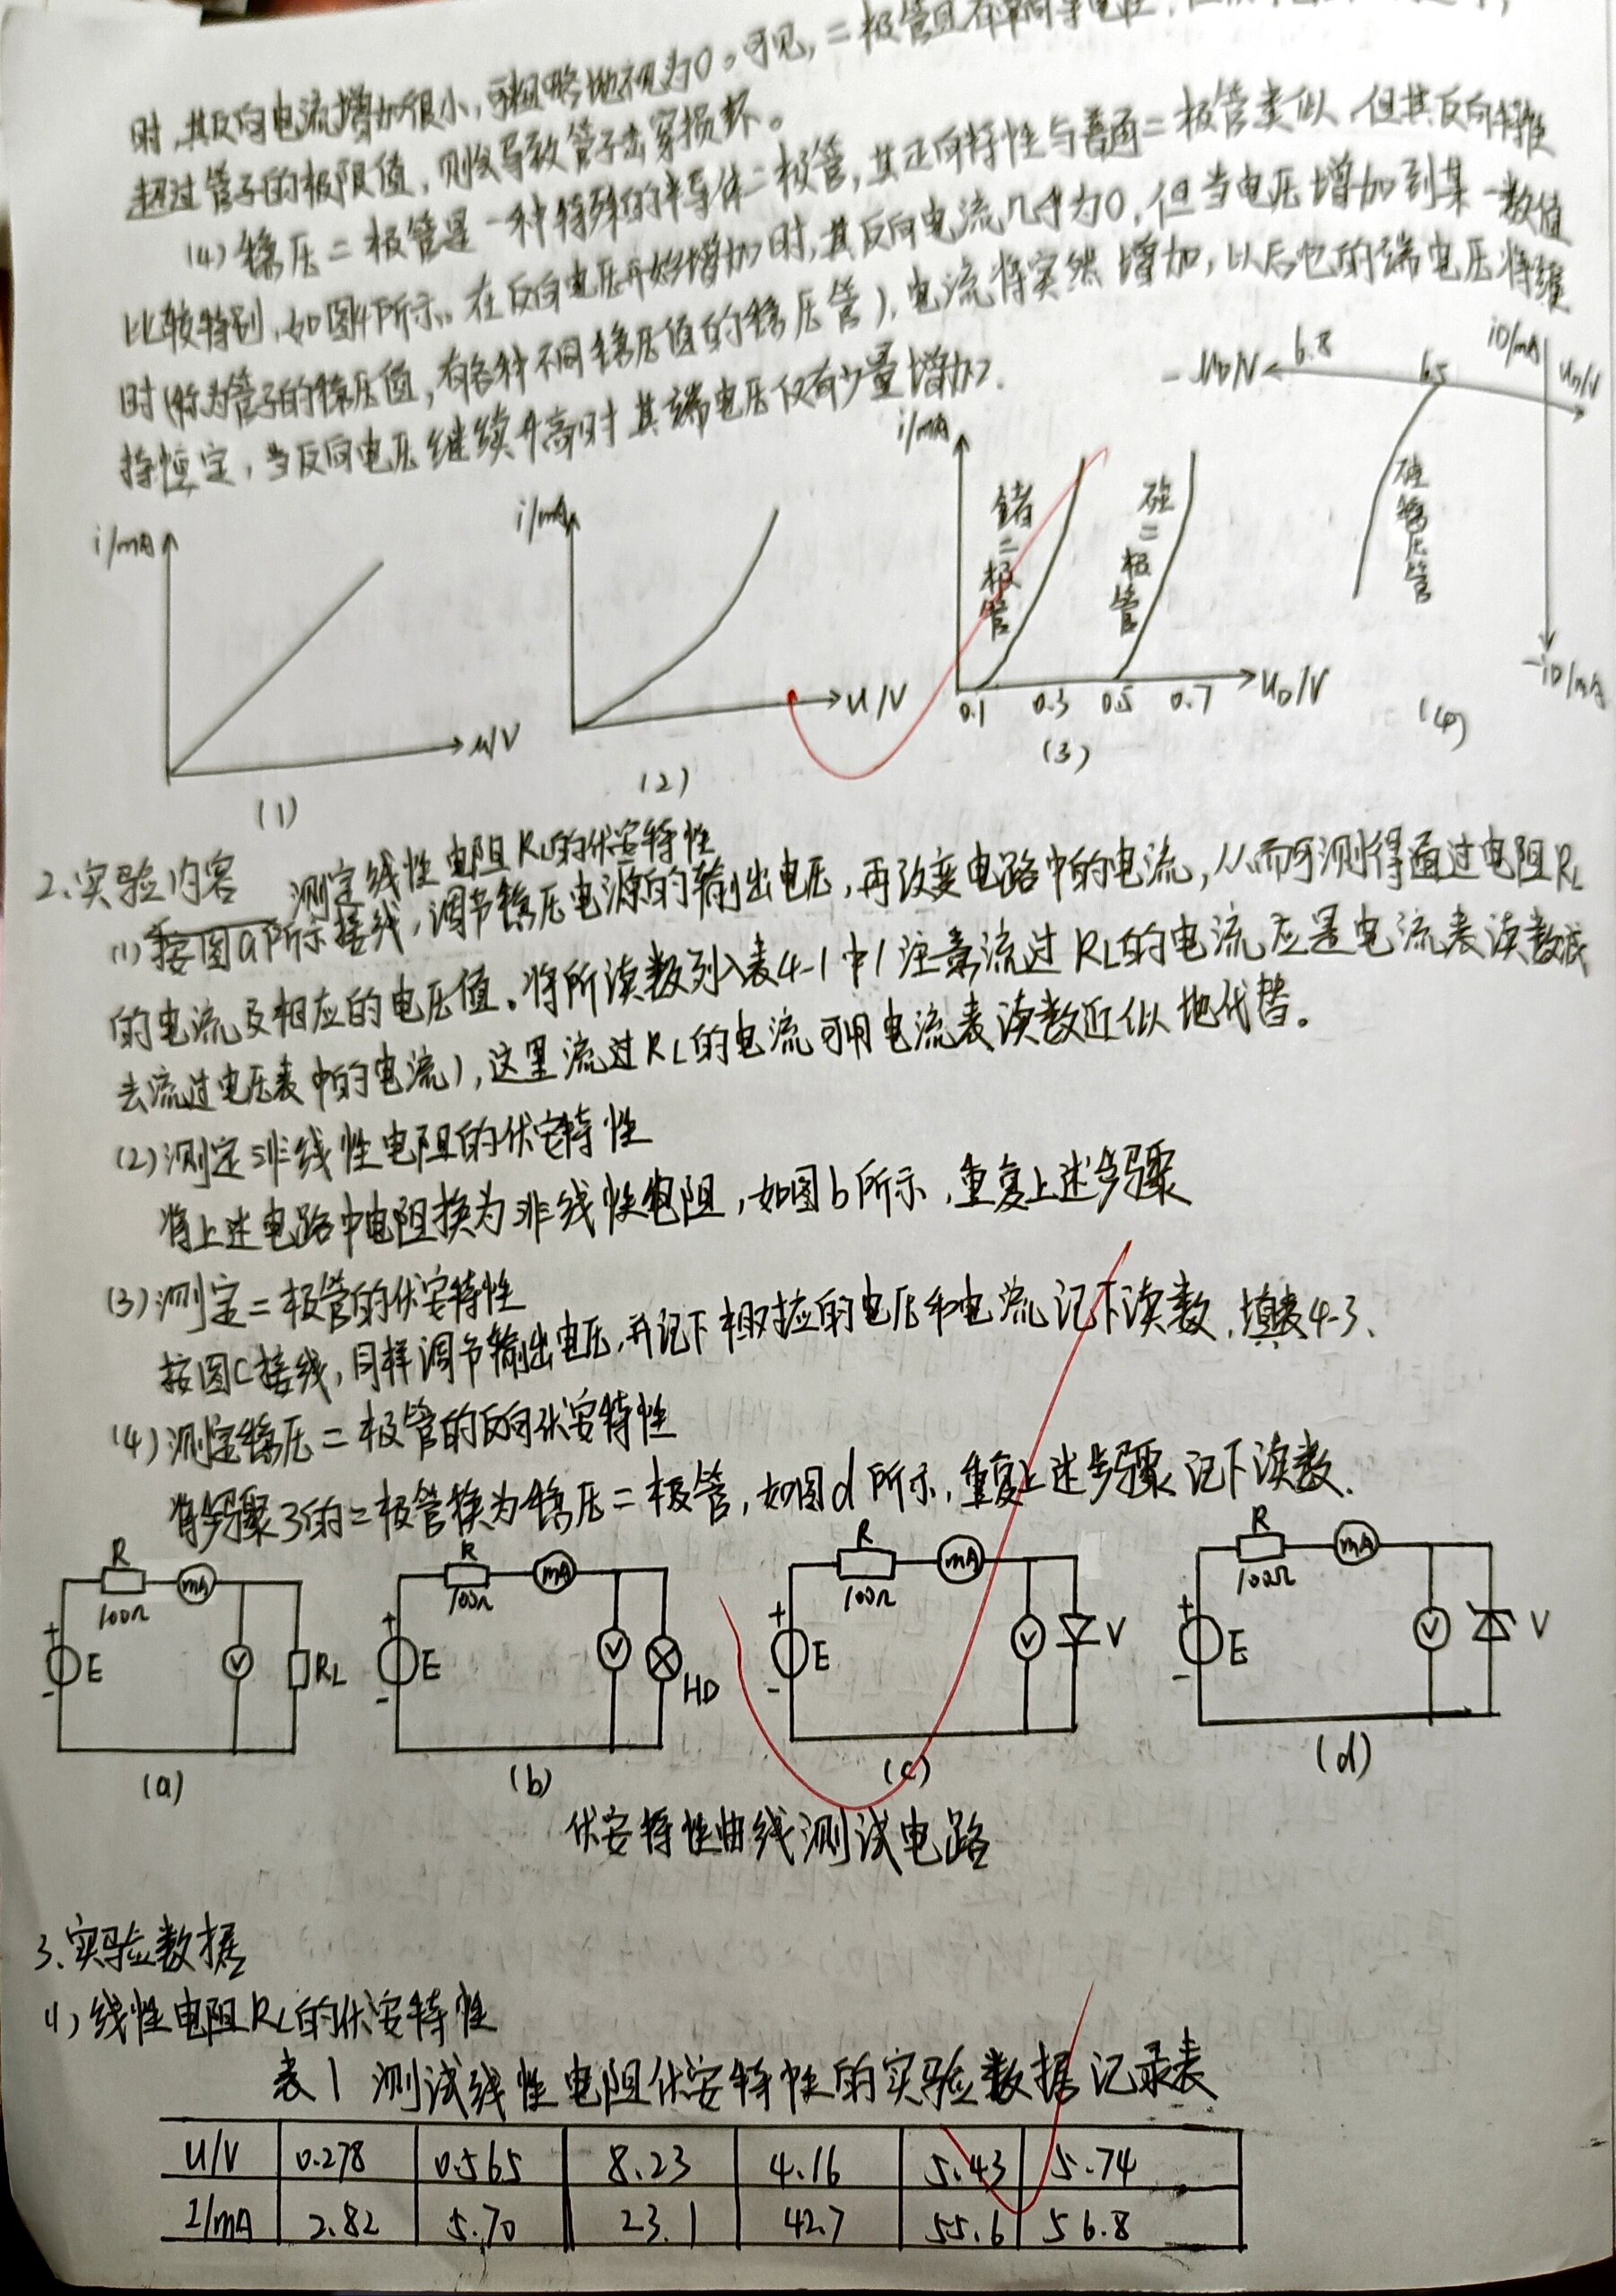 时,其反向电流增加很小,可粗略地视为0。可见,二极管具有单向导电性,
超过管子的极限值,则会导致管子击穿损坏。
(4)稳压二极管是一种特殊的半导体二极管,其正向特性与普通二极管类似,但其反向特性
比较特别,如图4所示。在反向电压开始增加时,其反向电流几乎为0,但当电压增加到某一数值
时(称为管子的稳压值,有各种不同稳压值的稳压管),电流将突然增加,以后它的端电压将维
持恒定,当反向电压继续升高时其端电压仅有少量增加。
i/mA
u/V
(1)
i/mA
u/V
(2)
i/mA
锗二极管
硅二极管
0.1 0.3 0.5 0.7
UD/V
(3)
-UD/V
6.8
6.5
iD/mA
UD/V
硅稳压管
-iD/mA
(4)
2.实验内容 测定线性电阻RL的伏安特性
(1)按图a所示接线,调节稳压电源的输出电压,再改变电路中的电流,从而可测得通过电阻RL
的电流及相应的电压值。将所读数列入表4-1中(注意流过RL的电流应是电流表读数减
去流过电压表中的电流),这里流过RL的电流可用电流表读数近似地代替。
(2)测定非线性电阻的伏安特性
将上述电路中电阻换为非线性电阻,如图b所示,重复上述步骤
(3)测定二极管的伏安特性
按图C接线,同样调节输出电压,并记下相对应的电压和电流记下读数,填表4-3、
(4)测定稳压二极管的反向伏安特性
将步骤3的二极管换为稳压二极管,如图d所示,重复上述步骤记下读数.
R
100Ω
mA
+
E
-
V
RL
(a)
R
100Ω
mA
+
E
-
V
HD
(b)
R
100Ω
mA
+
E
-
V
V
(c)
R
100Ω
mA
+
E
-
V
V
(d)
伏安特性曲线测试电路
3.实验数据
(1)线性电阻RL的伏安特性
表1 测试线性电阻伏安特性的实验数据记录表
U/V 0.278 0.565 8.23 4.16 5.43 5.74
I/mA 2.82 5.70 23.1 42.7 55.6 56.8